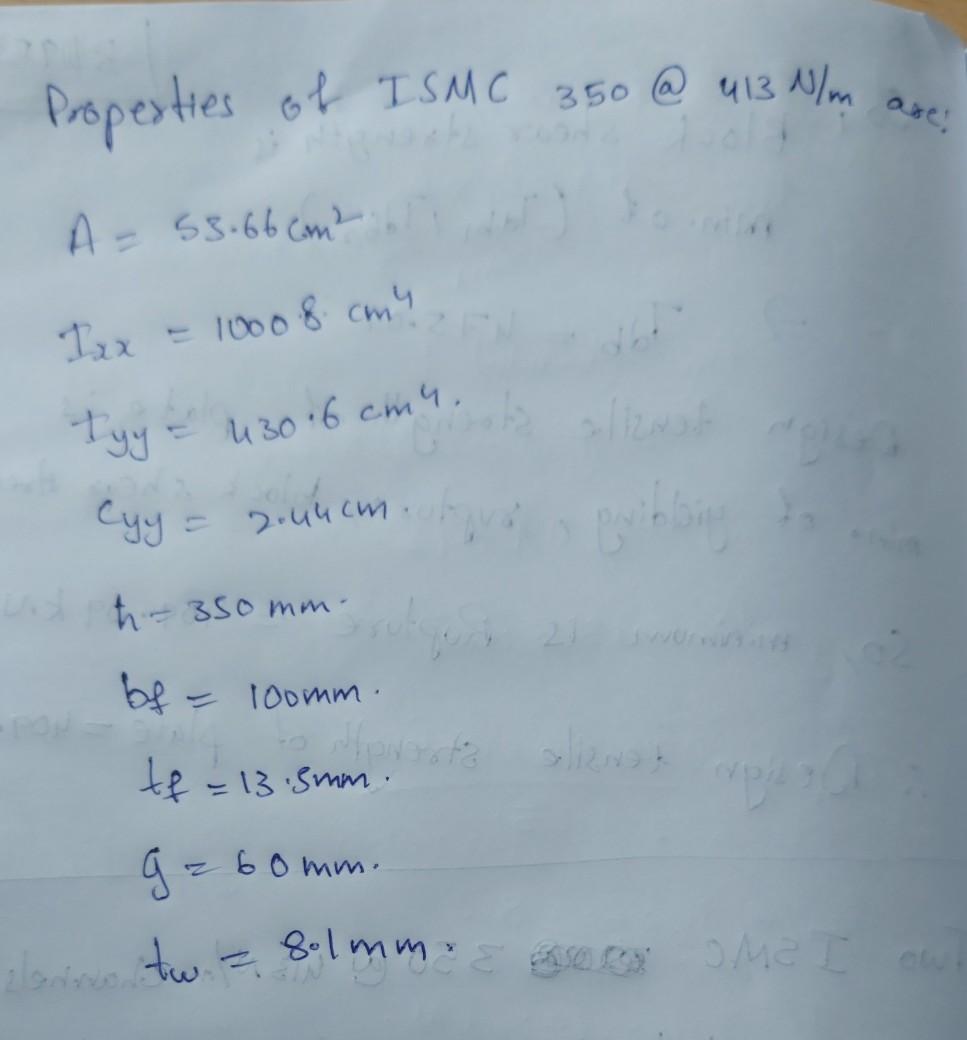 Properties of ISMC 350 @ 413 N/m are:
A = 53.66 cm²
Ixx = 10008 cm⁴
Iyy = 430.6 cm⁴.
Cyy = 2.44 cm.
h = 350 mm.
bf = 100mm.
tf = 13.5mm.
g = 60 mm.
tw = 8.1mm.